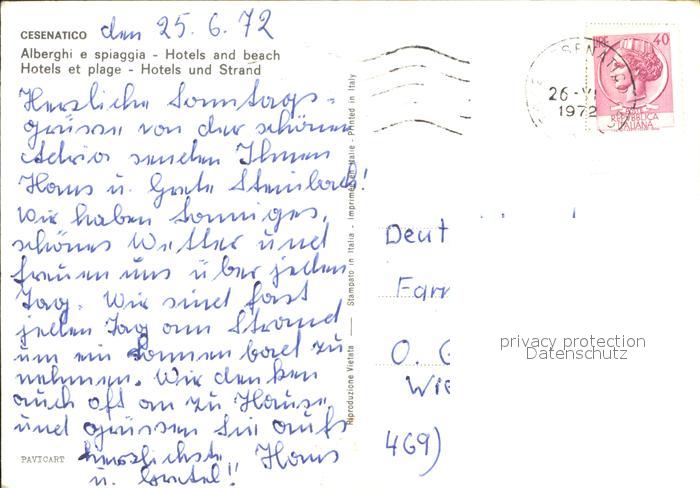 CESENATICO den 25.6.72
Alberghi e spiaggia - Hotels and beach
Hotels et plage - Hotels und Strand
Herzliche Sonntags-
grüsse von der schönen
Adria senden Ihnen
Hans u. Grete Steinbach!
Wir haben sonniges,
schönes Wetter und
freuen uns über jeden
Tag. Wir sind fast
jeden Tag am Strand
um ein Sonnenbad zu
nehmen. Wir denken
auch oft an zu Hause
und grüssen Sie aufs
herzlichste Hans
u. Gretel!!
PAVICART
Riproduzione Vietata — Stampato in Italia - Imprimé en Italie - Printed in Italy
LIRE 40
REPUBBLICA
ITALIANA
26-VI
1972
Deut
Fam
O. G
Wie
469)
privacy protection
Datenschutz